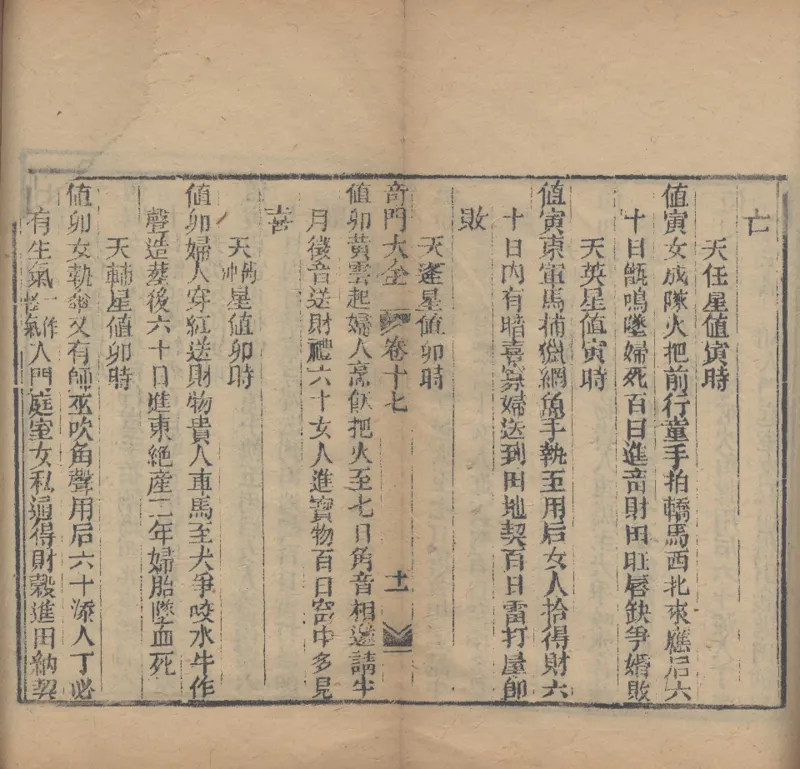 亡
天任星値寅時
値寅女成隊火把前行童手拍轎馬西北來應后六
十日甑鳴墜婦死百日進音財田旺唇缺爭婚敗
天英星値寅時
値寅東軍馬捕獵網魚手執至用后女人拾得財六
十日内有暗喜寡婦送到田地契百日雷打屋即
敗
天逢星値卯時
奇門大全 卷十七 十一
値卯黄雲起婦人烹飯把火至七日角音相邀請牛
月徵音送財禮六十女人進寳物百日窑中多見
喜
天禽冲星値卯時
値卯婦人穿紅送財物貴人車馬至犬爭咬水牛作
聲造葬後六十日進東絶産二年婦胎墜血死
天輔星値卯時
値卯女執傘又有師巫吹角聲用后六十添人丁必
有生氣一作 氣入門庭室女私通得財穀進田納契